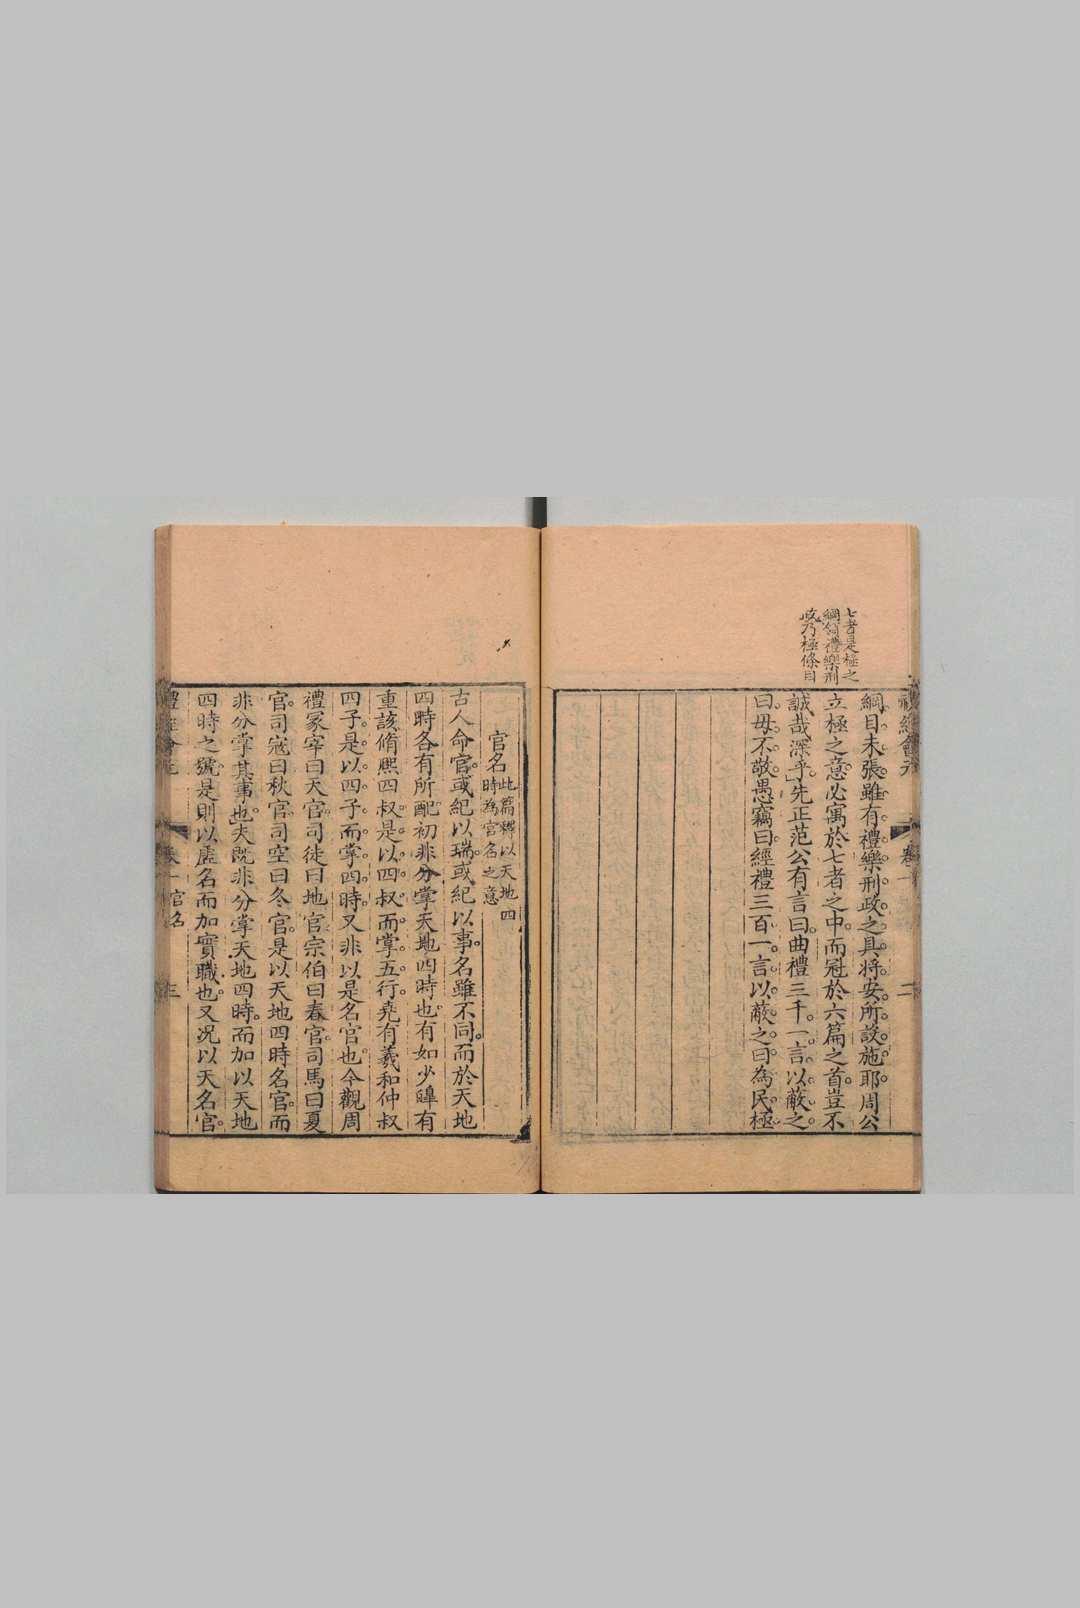 七者是極之
綱領禮樂刑
政乃極條目
綱目未張雖有禮樂刑政之具將安所設施耶周公
立極之意必寓於七者之中而冠於六篇之首豈不
誠哉深乎先正范公有言曰曲禮三千一言以蔽之
曰毋不敬愚竊曰經禮三百一言以蔽之曰為民極
官名
此篇釋以天地四
時為官名之意
古人命官或紀以瑞或紀以事名雖不同而於天地
四時各有所配初非分掌天地四時也有如少皡有
重該脩熙四叔是以四叔而掌五行堯有羲和仲叔
四子是以四子而掌四時又非以是名官也今觀周
禮冢宰曰天官司徒曰地官宗伯曰春官司馬曰夏
官司寇曰秋官司空曰冬官是以天地四時名官而
非分掌其事也夫既非分掌天地四時而加以天地
四時之號是則以虛名而加實職也又況以天名官
禮經會元
卷一官名
三